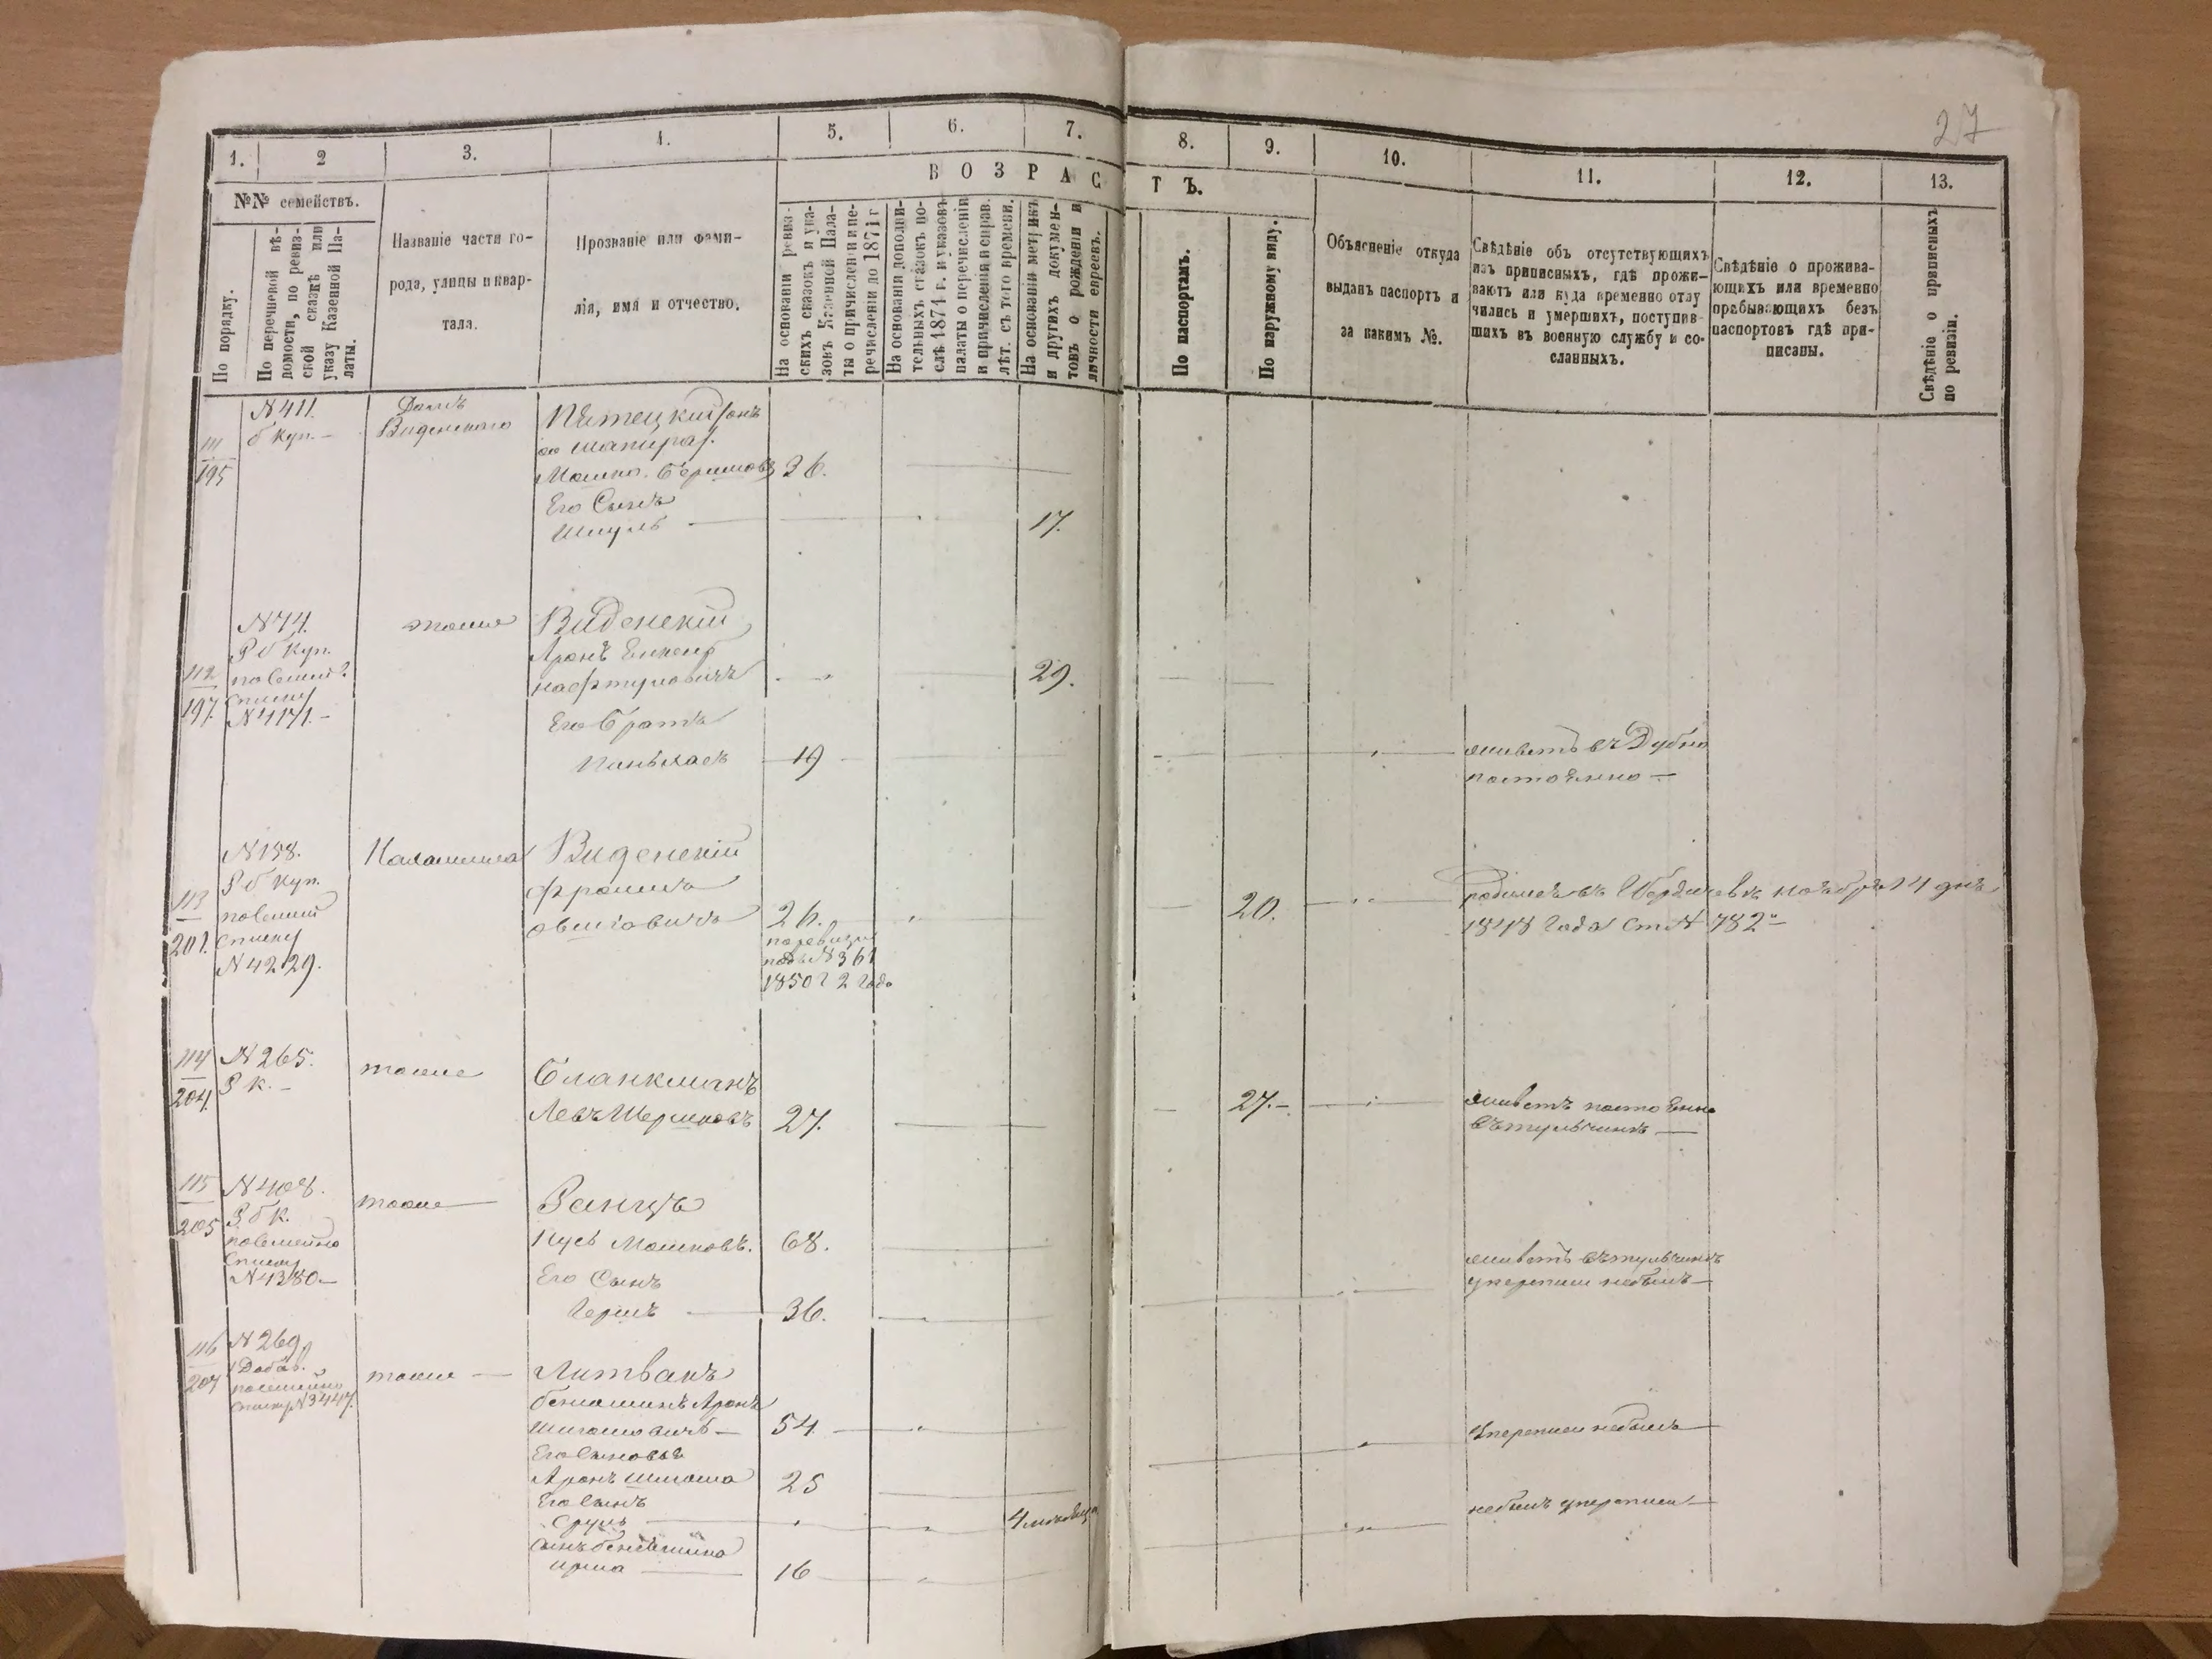 27
1.
2
3.
4.
5.
6.
7.
8.
9.
10.
11.
12.
13.
№№ семействъ.
ВОЗРАСТЪ.
По порядку.
По перечневой вѣ-
домости, по ревиз-
ской сказкѣ или
указу Казенной Па-
латы.
Названіе части го-
рода, улицы и квар-
тала.
Прозваніе или фами-
лія, имя и отчество.
На основаніи ревиз-
скихъ сказокъ и ука-
зовъ Казенной Пала-
ты о причисленіи и пе-
речисленіи до 1874 г
На основаніи дополни-
тельныхъ сказокъ по-
слѣ 1874 г. и указовъ
палаты о перечисленіи
и причисленіи и справ.
лѣт. съ того времени.
На основаніи метрикъ
и другихъ докумен-
товъ о рожденіи и
личности евреевъ.
По паспортамъ.
По наружному виду.
Объясненіе откуда
выданъ паспортъ и
за какимъ №.
Свѣдѣніе объ отсутствующихъ
изъ приписныхъ, гдѣ прожи-
ваютъ или куда временно отлу
чились и умершихъ, поступив-
шихъ въ военную службу и со-
сланныхъ.
Свѣдѣніе о прожива-
ющихъ или временно
пребывающихъ безъ
паспортовъ гдѣ при-
писаны.
Свѣдѣніе о приписныхъ
по ревизіи.
111
195
N 411.
б куп. –
Домъ
Виденскаго
Пятецкій онъ
Шапира
Мошко Беришовъ 36.
Его Сынъ
Шмуль 17.
112
197.
N 74.
3 б куп.
списку
N 4171. –
тоже
Виденскій
Аронъ
Нафтуловичъ 29.
Его Братъ
Пинькасъ 19
живетъ въ Дубно
постоянно –
113
201.
N 158.
3 б куп.
списку
N 4229.
Виденскій
Фроимъ
Овшіовичъ 26. 20.
по ревизіи
подъ N 361
1850 г 2 года
родился въ Бердичевѣ ноября 14 дня
1848 года ст N 782 –
114
204.
N 265.
3 к. –
тоже
Бланкманъ
Левъ Шериковъ 27. 27. –
живетъ постоянно
въ тульчинѣ –
115
205
N 408.
3 б к.
посемейно
списку
N 4380 –
тоже
Ранцъ
Нусъ Мошковъ. 68.
Его Сынъ
Гершъ 36.
живетъ въ тульчинѣ
у переписи не былъ –
116
207
N 269
Добав.
посемейно
списку N 3447.
тоже
Литвакъ
Беньяминъ Аронъ
Шиомовичъ – 54
Его Сыновья
Аронъ Шиома 25
Его Сынъ
Сруль 4 мѣсяца
Сынъ Беньямина
16
у переписи не былъ
не былъ у переписи –